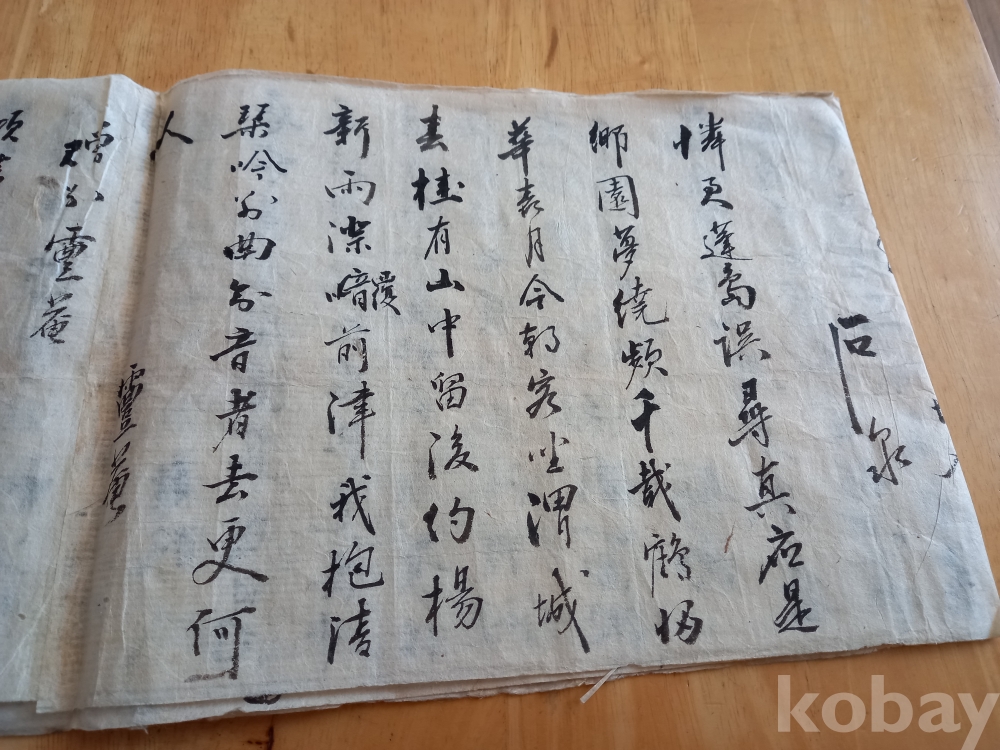 石泉
憐君蓬島誤尋真应是
鄉園夢繞頻千載鶴歸
華表月今朝客坐渭城
春桂有山中留後約楊
新雨深暗覆前津我抱清
琴吟別曲知音者去更何
人
豊菴
贈別雲菴
kobay